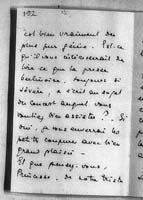 192
c'est bien vraiment du
plus pur génie. Est-ce
qu'il vous intéresserait de
lire ce que la presse
, toujours si
sévère, a écrit au sujet
de concert auquel vous
assister ? Si
oui, je vous enverrai les
petits coupure avec le
grand plaisir.
Et que pensez-vous,
, de notre triste